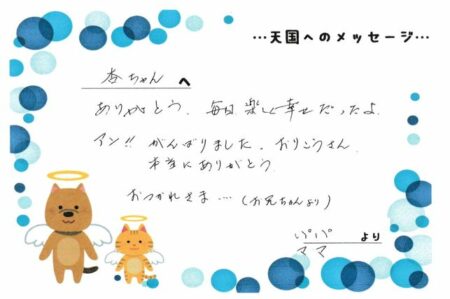 …天国へのメッセージ…
杏ちゃん へ
ありがとう。毎日楽しく幸せだったよ
アン!! がんばりました。おりこうさん
本当にありがとう
おつかれさま…(お兄ちゃんより)
パパ
ママ より